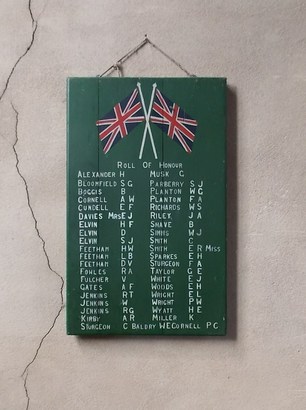 Roll Of Honour
Alexander H Musk G
Bloomfield S G Parberry S J
Boggis B Planton W G
Cornell A W Planton F A
Cundell E F Richards W S
Davies Mrs E J Riley J A
Elvin H F Shave B
Elvin D Simms W J
Elvin S J Smith C
Feetham H W Smith E R Miss
Feetham L B Sparkes E H
Feetham D V Sturgeon F A
Fowles R A Taylor G E
Fulcher V White E J
Gates A F Woods E H
Jenkins R T Wright E L
Jenkins W Wright P W
Jenkins R G Wyatt H E
Kirby A R Miller K
Sturgeon C Baldry W E Cornell P C